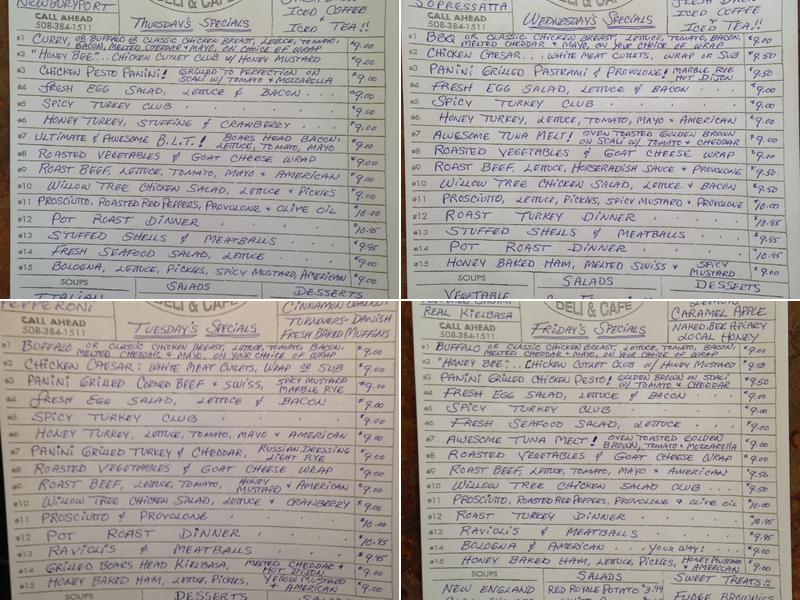 NEWBURYPORT
DELI & CAFE
ICED COFFEE
&
ICED TEA!!
CALL AHEAD
508-384-1511
THURSDAY'S SPECIALS
#1 CURRY, OR BUFFALO OR CLASSIC CHICKEN BREAST, LETTUCE, TOMATO, BACON, MELTED CHEDDAR & MAYO, ON CHOICE OF WRAP $9.00
#2 "HONEY BEE"... CHICKEN CUTLET CLUB W/ HONEY MUSTARD $9.00
#3 CHICKEN PESTO PANINI! GRILLED TO PERFECTION ON SCALI W/ TOMATO & MOZZARELLA $9.00
#4 FRESH EGG SALAD, LETTUCE & BACON $9.00
#5 SPICY TURKEY CLUB $9.00
#6 HONEY TURKEY, STUFFING & CRANBERRY $9.00
#7 ULTIMATE & AWESOME B.L.T.! BOARS HEAD BACON, LETTUCE, TOMATO, MAYO $9.00
#8 ROASTED VEGETABLES & GOAT CHEESE WRAP $9.00
#9 ROAST BEEF, LETTUCE, TOMATO, MAYO & AMERICAN $9.00
#10 WILLOW TREE CHICKEN SALAD, LETTUCE & PICKLES $9.00
#11 PROSCIUTTO, ROASTED RED PEPPERS, PROVOLONE & OLIVE OIL $10.00
#12 POT ROAST DINNER $10.95
#13 STUFFED SHELLS & MEATBALLS $9.95
#14 FRESH SEAFOOD SALAD, LETTUCE $9.00
#15 BOLOGNA, LETTUCE, PICKLES, SPICY MUSTARD, AMERICAN $9.00
SOUPS
SALADS
DESSERTS
ITALIAN
SOPRESSATA
DELI & CAFE
ICED COFFEE
&
ICED TEA!!
CALL AHEAD
508-384-1511
WEDNESDAY'S SPECIALS
#1 BBQ OR CLASSIC CHICKEN BREAST, LETTUCE, TOMATO, BACON, MELTED CHEDDAR & MAYO, ON YOUR CHOICE OF WRAP $9.00
#2 CHICKEN CAESAR... WHITE MEAT CUTLETS, WRAP OR SUB $9.50
#3 PANINI GRILLED PASTRAMI & PROVOLONE! MARBLE RYE HOT DIJON $9.50
#4 FRESH EGG SALAD, LETTUCE & BACON $9.00
#5 SPICY TURKEY CLUB $9.00
#6 HONEY TURKEY, LETTUCE, TOMATO, MAYO & AMERICAN $9.00
#7 AWESOME TUNA MELT! OVEN TOASTED GOLDEN BROWN ON SCALI W/ TOMATO & CHEDDAR $9.00
#8 ROASTED VEGETABLES & GOAT CHEESE WRAP $9.00
#9 ROAST BEEF, LETTUCE, HORSERADISH SAUCE & PROVOLONE $9.50
#10 WILLOW TREE CHICKEN SALAD, LETTUCE & BACON $9.50
#11 PROSCIUTTO, LETTUCE, PICKLES, SPICY MUSTARD & PROVOLONE $10.00
#12 ROAST TURKEY DINNER $10.95
#13 STUFFED SHELLS & MEATBALLS $9.95
#14 POT ROAST DINNER $10.95
#15 HONEY BAKED HAM, MELTED SWISS & SPICY MUSTARD $9.00
SOUPS
SALADS
DESSERTS
VEGETABLE
PEPPERONI
DELI & CAFE
CINNAMON WALNUT
TURNOVERS - DANISH
FRESH BAKED MUFFINS
CALL AHEAD
508-384-1511
TUESDAY'S SPECIALS
#1 BUFFALO OR CLASSIC CHICKEN BREAST, LETTUCE, TOMATO, BACON, MELTED CHEDDAR & MAYO, ON YOUR CHOICE OF WRAP $9.00
#2 CHICKEN CAESAR: WHITE MEAT CUTLETS, WRAP OR SUB $9.00
#3 PANINI GRILLED CORNED BEEF & SWISS, SPICY MUSTARD MARBLE RYE $9.00
#4 FRESH EGG SALAD, LETTUCE & BACON $9.00
#5 SPICY TURKEY CLUB $9.00
#6 HONEY TURKEY, LETTUCE, TOMATO, MAYO & AMERICAN $9.00
#7 PANINI GRILLED TURKEY & CHEDDAR, RUSSIAN DRESSING LIGHT RYE $9.00
#8 ROASTED VEGETABLES & GOAT CHEESE WRAP $9.00
#9 ROAST BEEF, LETTUCE, TOMATO, HONEY MUSTARD & AMERICAN $9.00
#10 WILLOW TREE CHICKEN SALAD, LETTUCE & CRANBERRY $9.00
#11 PROSCIUTTO & PROVOLONE $10.00
#12 POT ROAST DINNER $10.95
#13 RAVIOLIS & MEATBALLS $9.95
#14 GRILLED BOARS HEAD KIELBASA, MELTED CHEDDAR & HOT DIJON $9.00
#15 HONEY BAKED HAM, LETTUCE, PICKLES, YELLOW MUSTARD & AMERICAN $9.00
SOUPS
DESSERTS
REAL KIELBASA
DELI & CAFE
CARAMEL APPLE
NAKED BEE APIARY
LOCAL HONEY
CALL AHEAD
508-384-1511
FRIDAY'S SPECIALS
#1 BUFFALO OR CLASSIC CHICKEN BREAST, LETTUCE, TOMATO, BACON, MELTED CHEDDAR & MAYO, ON YOUR CHOICE OF WRAP $9.00
#2 "HONEY BEE"... CHICKEN CUTLET CLUB W/ HONEY MUSTARD $9.50
#3 PANINI GRILLED CHICKEN PESTO! GOLDEN BROWN ON SCALI W/ TOMATO & CHEDDAR $9.50
#4 FRESH EGG SALAD, LETTUCE & BACON $9.00
#5 SPICY TURKEY CLUB $9.00
#6 FRESH SEAFOOD SALAD, LETTUCE $9.00
#7 AWESOME TUNA MELT! OVEN TOASTED GOLDEN BROWN, TOMATO & MOZZARELLA $9.00
#8 ROASTED VEGETABLES & GOAT CHEESE WRAP $9.00
#9 ROAST BEEF, LETTUCE, TOMATO, MAYO & AMERICAN $9.50
#10 WILLOW TREE CHICKEN SALAD CLUB $9.50
#11 PROSCIUTTO, ROASTED RED PEPPERS, PROVOLONE & OLIVE OIL $10.00
#12 ROAST TURKEY DINNER $10.95
#13 RAVIOLIS & MEATBALLS $9.95
#14 BOLOGNA & AMERICAN ... YOUR WAY! $9.00
#15 HONEY BAKED HAM, LETTUCE, PICKLES, HONEY MUSTARD & AMERICAN $9.00
SOUPS
SALADS
SWEET TREATS!!
NEW ENGLAND
RED ROYALE POTATO $3.99
FUDGE BROWNIES